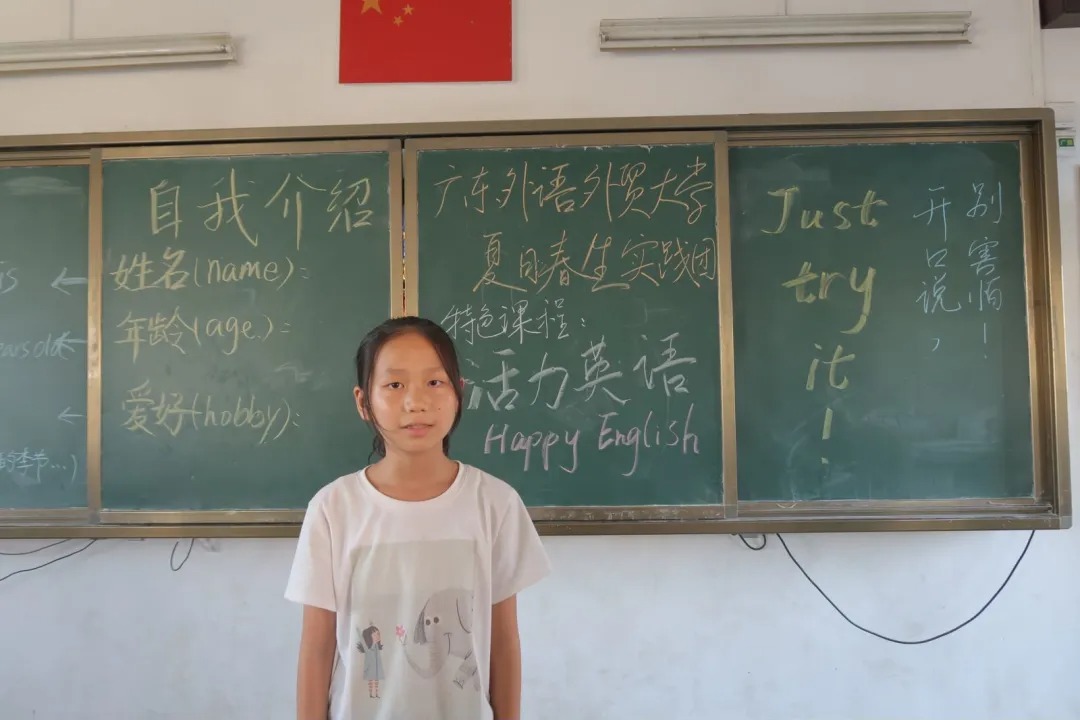 is ←
←
←
的季节...)
自我介绍
姓名(name):
年龄(age):
爱好(hobby):
广东外语外贸大学
夏日春生实践团
特色课程:
活力英语
Happy English
Just
try
it
!
别害怕!
开口说,